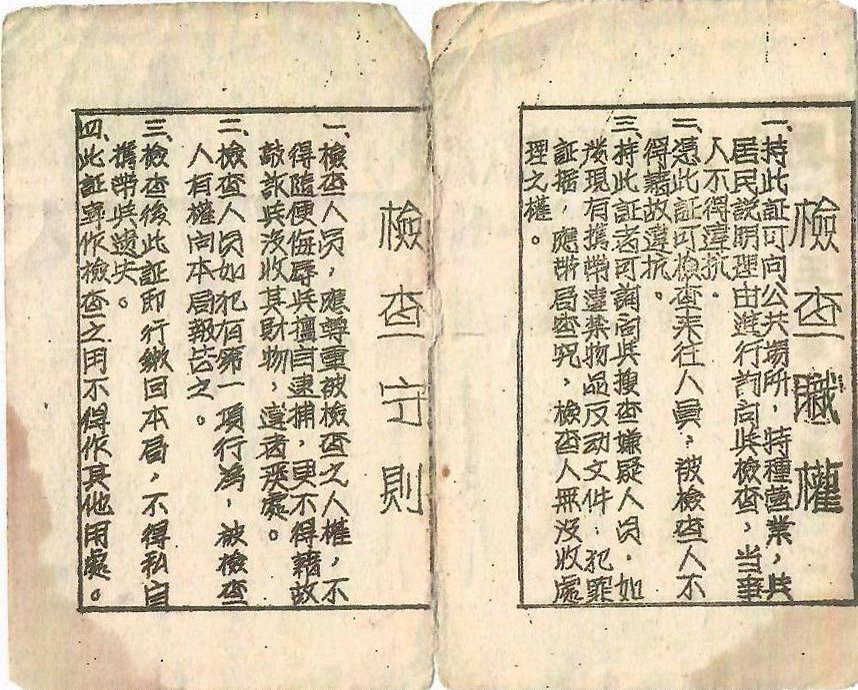 檢查職權
一、持此証可向公共場所，特種營業，與
居民說明理由進行詢问與檢查，当事
人不得違抗．
二、憑此証可檢查來往人員，被檢查人不
得藉故違抗。
三、持此証者可詢问與搜查嫌疑人员．如
發現有攜帶違禁物品反动文件．犯罪
証据，應帶局查究，檢查人無没收處
理之權。
檢查守則
一、檢查人员，應尊重被檢查之人權，不
得隨便侮辱與擅自逮捕，更不得藉故
敲詐與没收其財物，違者受處。
二、檢查人员如犯有第一項行為，被檢查
人有權向本局報告之。
三、檢查後此証即行繳回本局，不得私自
攜帶與遗失。
四、此証專作檢查之用不得作其他用處。